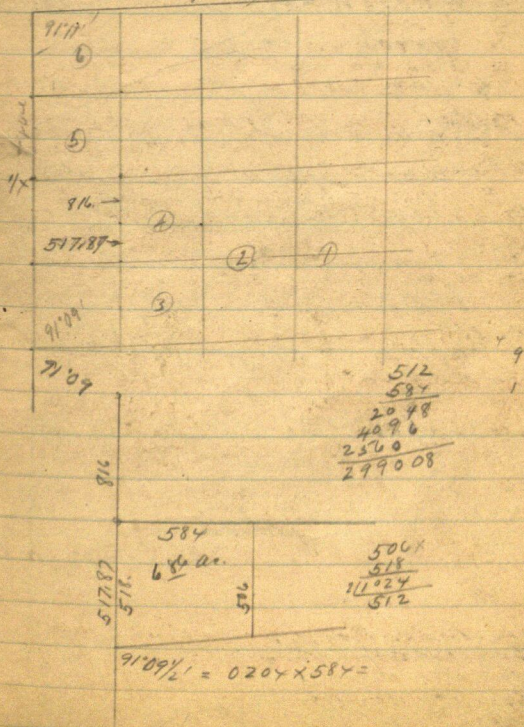 91°11'
⑥
⑤
1/x
816.→
④
517.87→
②
①
③
91°09'
91°09
9
1
512
584
2048
4096
2560
299008
816
584
6 86 ac.
517.87
518.
506
506
518
2|1024
512
91°09½' = 0204 x 584 =